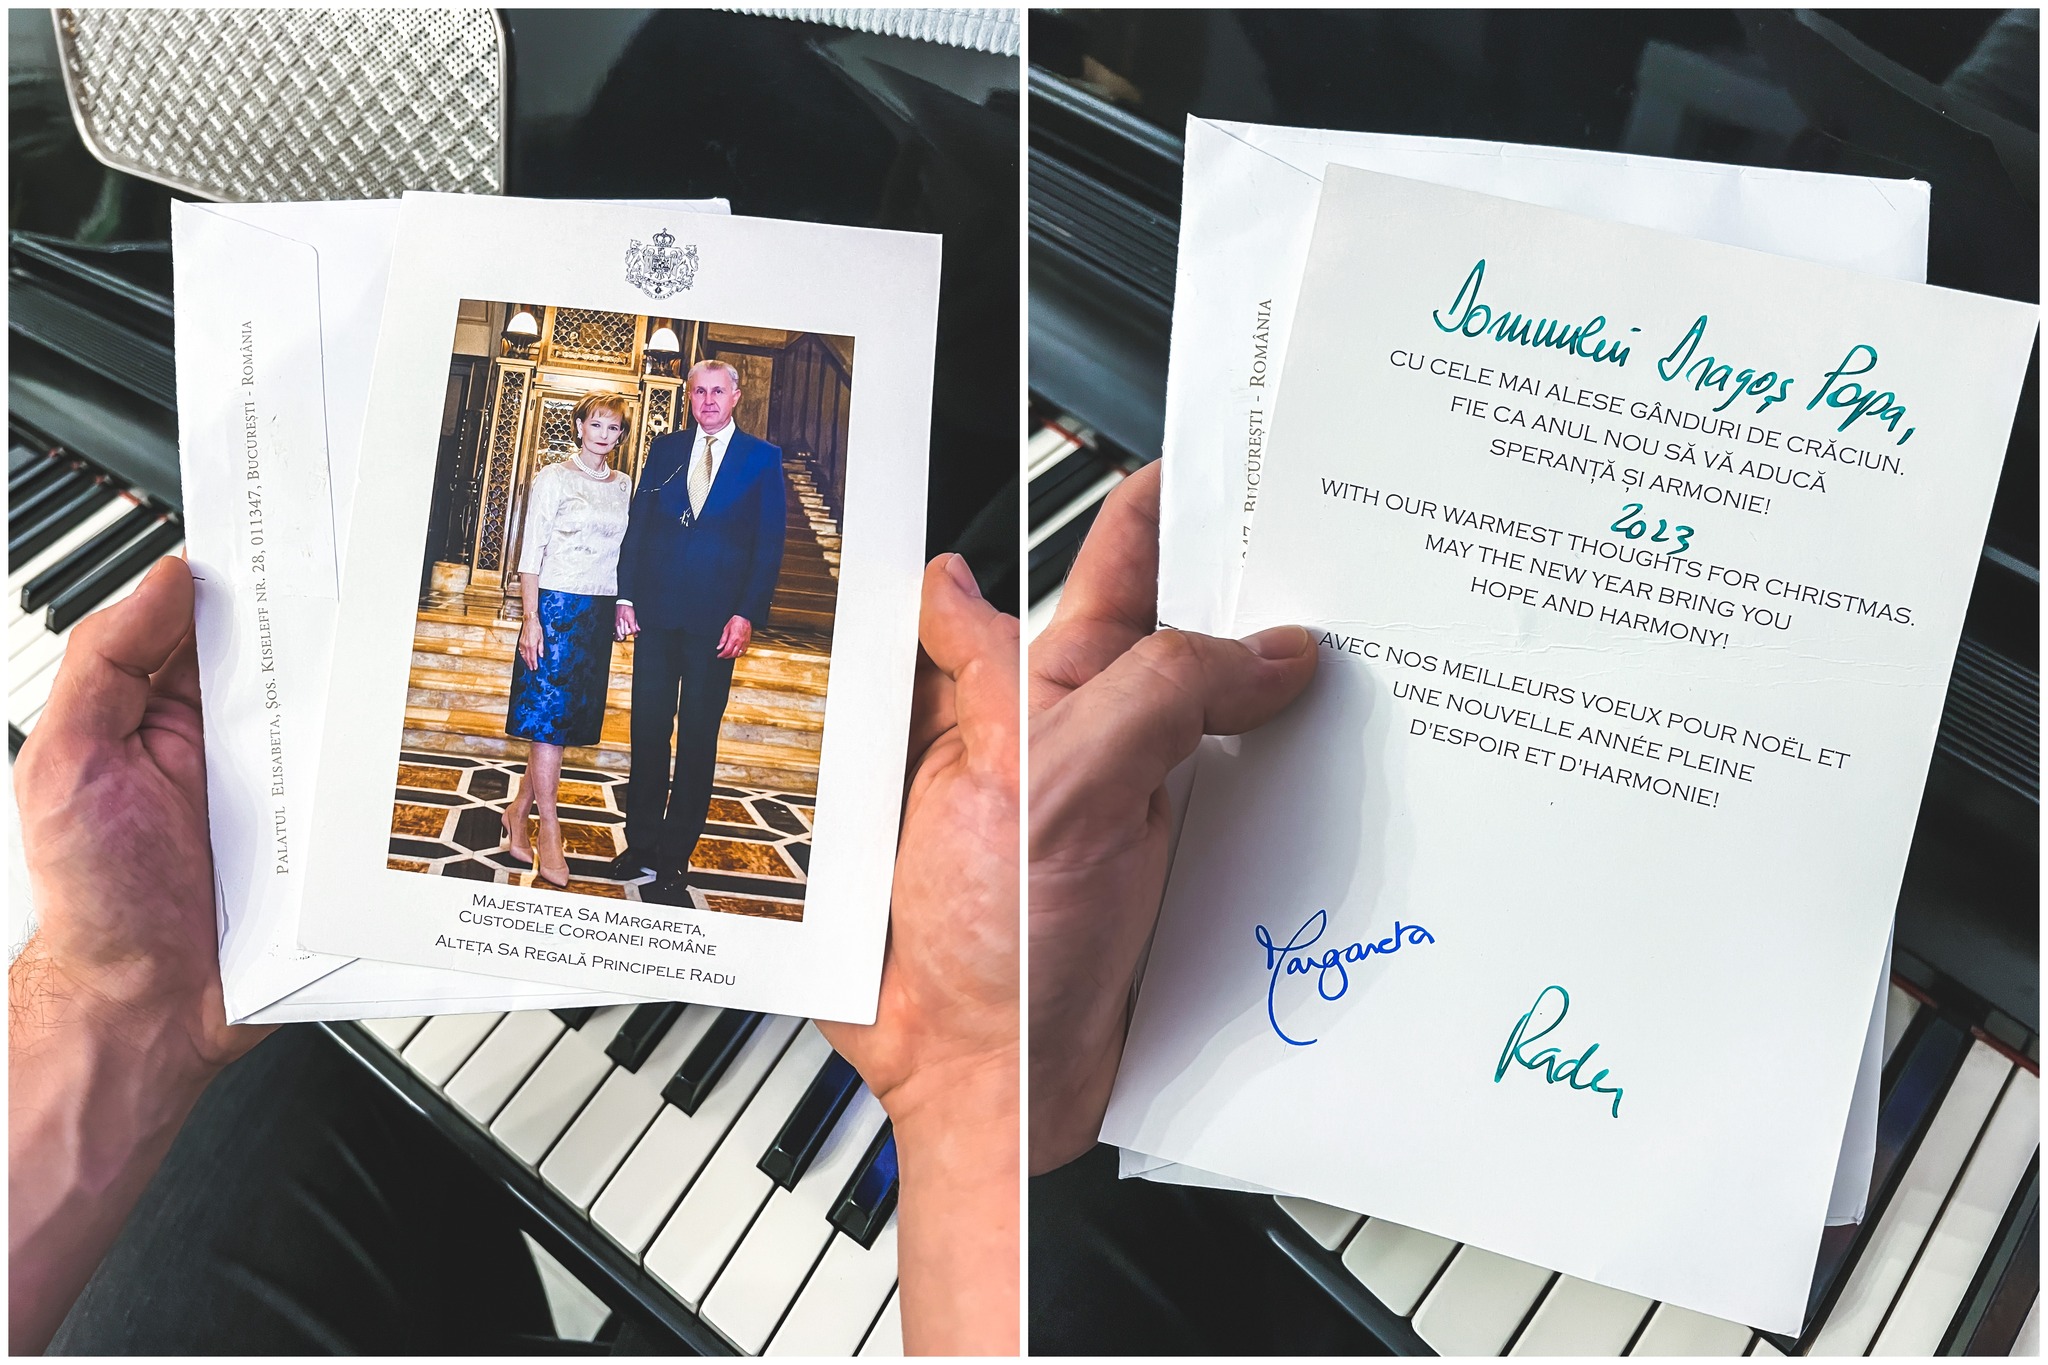 PALATUL ELISABETA, ȘOS. KISELEFF NR. 28, 011347, BUCUREȘTI - ROMÂNIA
MAJESTATEA SA MARGARETA,
CUSTODELE COROANEI ROMÂNE
ALTEȚA SA REGALĂ PRINCIPELE RADU
BUCUREȘTI - ROMÂNIA
Domnului Dragoș Popa,
CU CELE MAI ALESE GÂNDURI DE CRĂCIUN.
FIE CA ANUL NOU SĂ VĂ ADUCĂ
SPERANȚĂ ȘI ARMONIE!
2023
WITH OUR WARMEST THOUGHTS FOR CHRISTMAS.
MAY THE NEW YEAR BRING YOU
HOPE AND HARMONY!
AVEC NOS MEILLEURS VOEUX POUR NOËL ET
UNE NOUVELLE ANNÉE PLEINE
D'ESPOIR ET D'HARMONIE!
Margareta
Radu